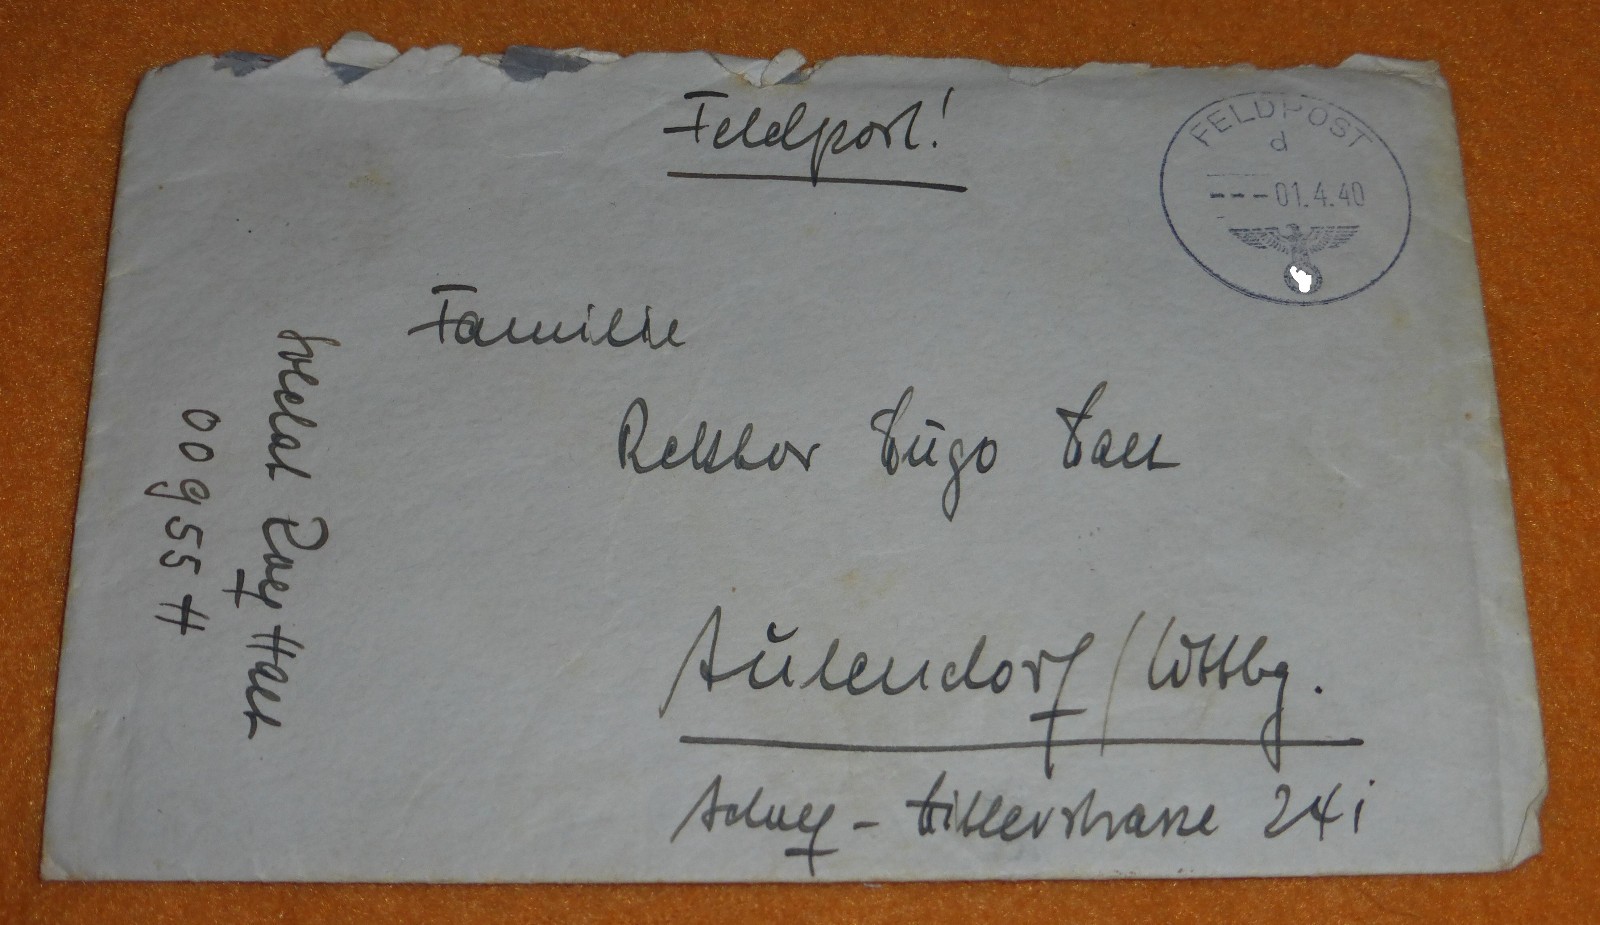 Feldpost!
FELDPOST
d
---01.4.40
Familie
Rektor Hugo
Aulendorf / Wttbg.
Adolf-Hitlerstrasse 24i
Soldat Rolf
00955 H